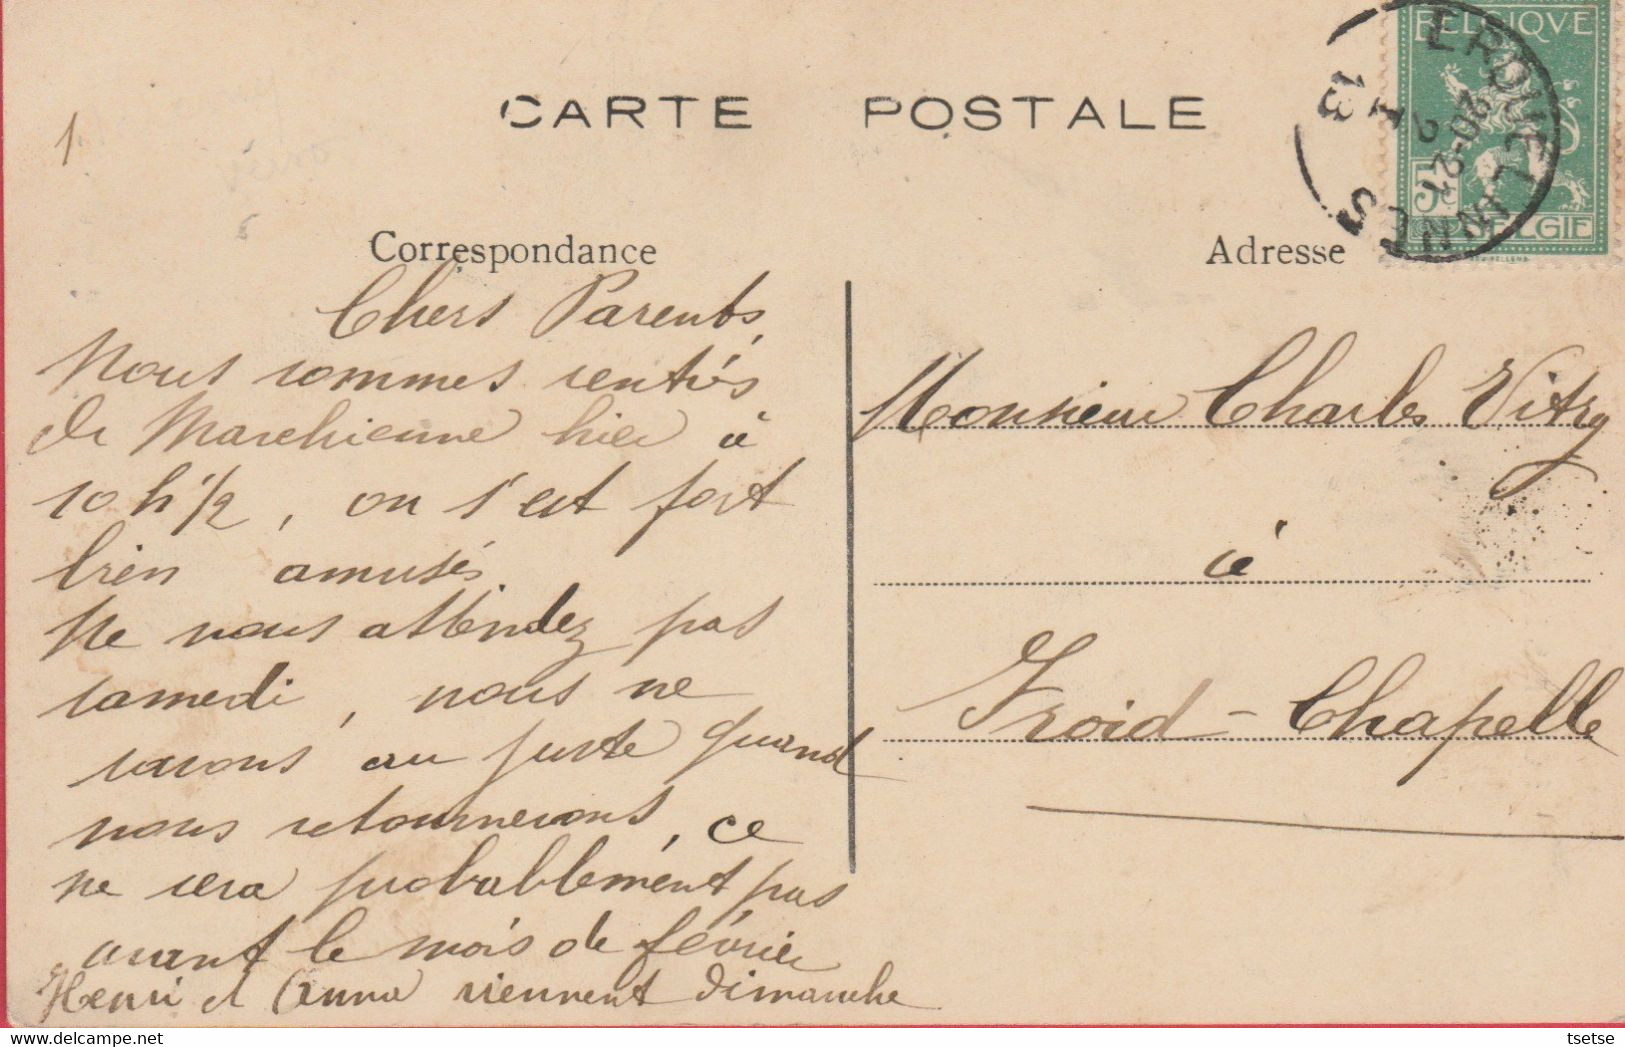 1
CARTE POSTALE
BELGIQUE
5
BELGIE
ERQUELINNES
20-21
2
I
13
Correspondance
Adresse
Chers Parents,
Nous sommes rentrés
de Marchienne hier à
10 h 1/2, on s'est fort
bien amusés.
Ne nous attendez pas
samedi, nous ne
savons au juste quand
nous retournerons, ce
ne sera probablement pas
avant le mois de février
Henri et Anna viennent dimanche
Monsieur Charles Vitry
à
Froid-Chapelle
tsetse